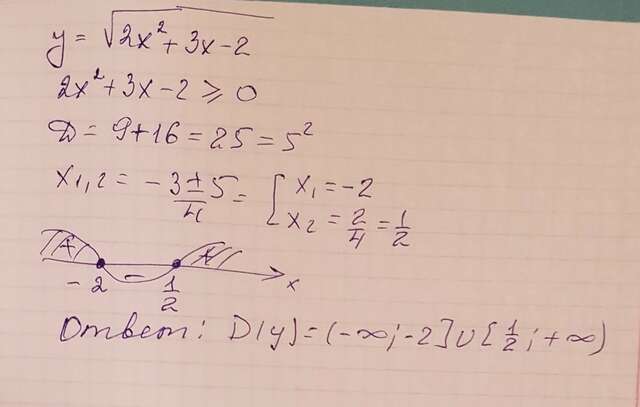 y = √(2x² + 3x - 2)
2x² + 3x - 2 ⩾ 0
D = 9 + 16 = 25 = 5²
x₁,₂ = (-3 ± 5)/4 = [ x₁ = -2
x₂ = 2/4 = 1/2
+ - +
-2 1/2 x
Ответ: D(y) = (-∞; -2] ∪ [1/2; +∞)